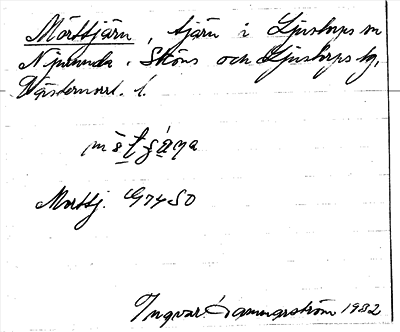 Mörttjärn, tjärn i Ljustorps sn
Njurunda. Sköns och Ljustorps tg,
Västernorrl. l.
Morttj. G7450
Ingvar Dammarström 1982